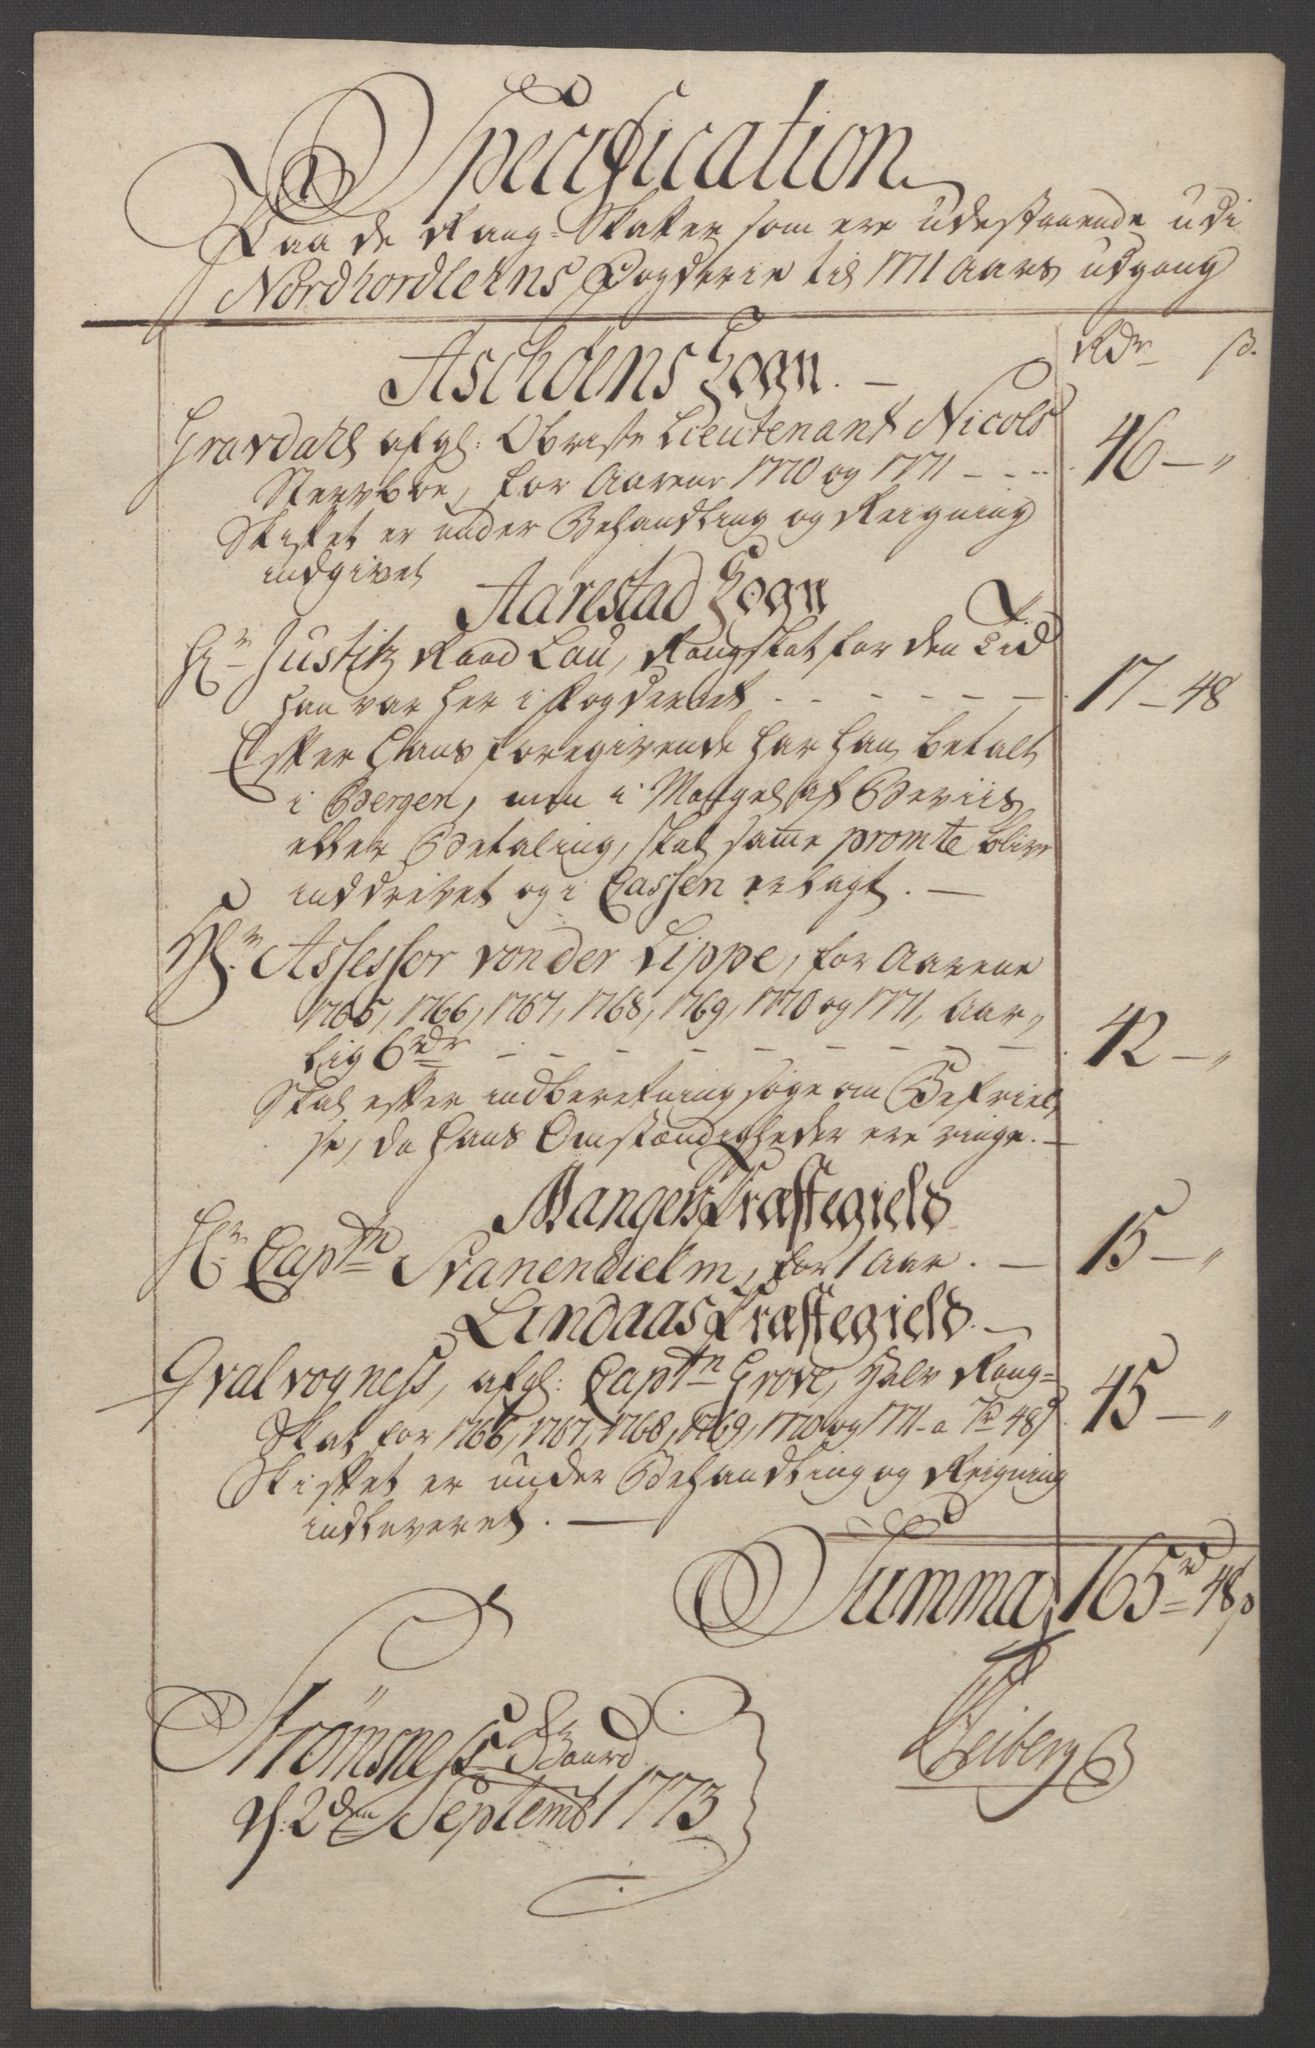 Specification
Paa de Rang-Skatter som ere udestaaende udi
Nordhordlehns Fogderie til 1771 Aars udgang
Rdr ß.
Aschöens Sogn. —
Gravdahl afgl: Obriste Lieutenant Nicols
Sterboe, for Aarene 1770 og 1771 - - - 46 — "
Skiftet er under Behandling og Reigning
indgivet
Aarestad Sogn
Hr Justitz Raad Lau, Rangskat for den Tid
han var her i Fogderiet - - - - - - 17 — 48
Efter Hans foregivende har han betalt
i Bergen, men i Mangel af Beviis
eller Betaling, skal same promte blive
inddrivet og i Cassen erlagt. —
Hr. Assessor von der Lippe, for Aarene
1765, 1766, 1767, 1768, 1769, 1770 og 1771, Aar-
lig 6 rdr - - - - - - - - 42 — "
Skal efter indberetning søge om Befriel-
se, da Hans Omstændigheder ere ringe. —
Mangers Præstegield
Hr Captn Svanenhielm, for 1 Aar. — 15 — "
Lindaas Præstegield. —
Gvalvogness, afgl: Captn Grove, Halv Rang-
Skat for 1766, 1767, 1768, 1769, 1770 og 1771 a 7 rd 48 ß 45 — "
Skiftet er under Behandling og Reigning
indleveret. —
Summa 165 rd 48 ß
Strömsness Gaard
d: 2den Septembr 1773
Heiberg